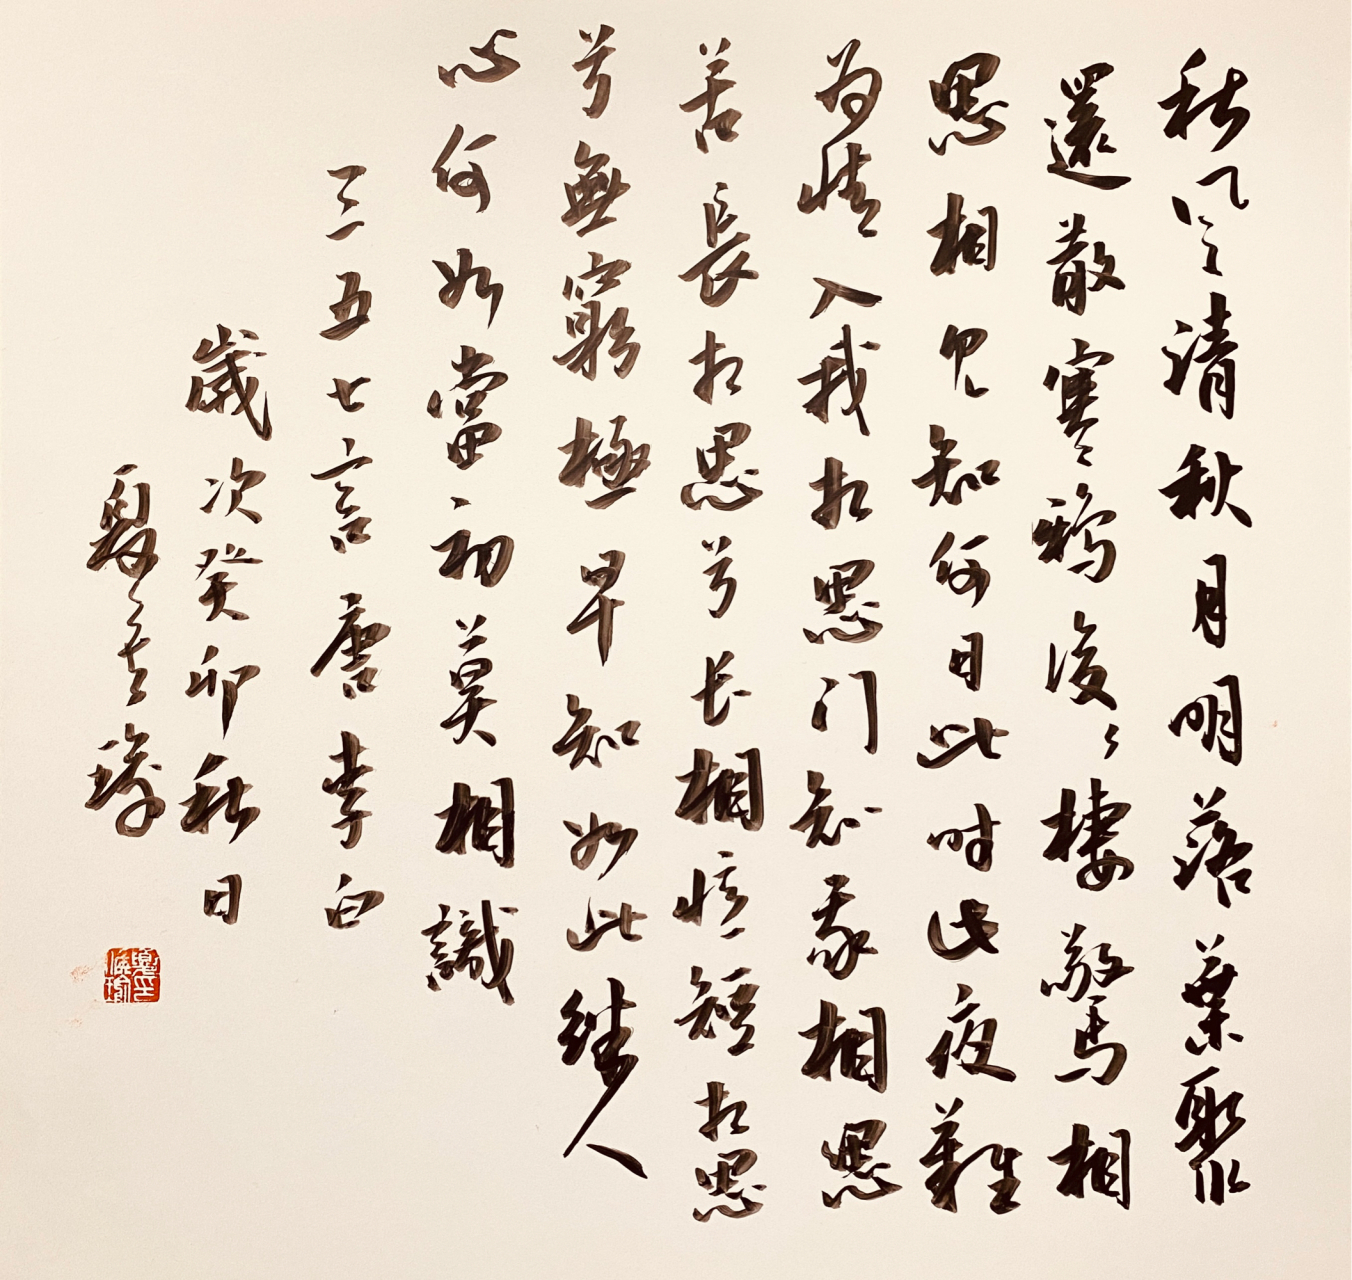 秋風清秋月明落葉聚
還散寒鴉復棲驚相
思相見知何日此時此夜難
为情入我相思门知我相思
苦長相思兮长相憶短相思
兮無窮極早知如此絆人
心何如當初莫相識
三五七言唐李白
歲次癸卯秋日